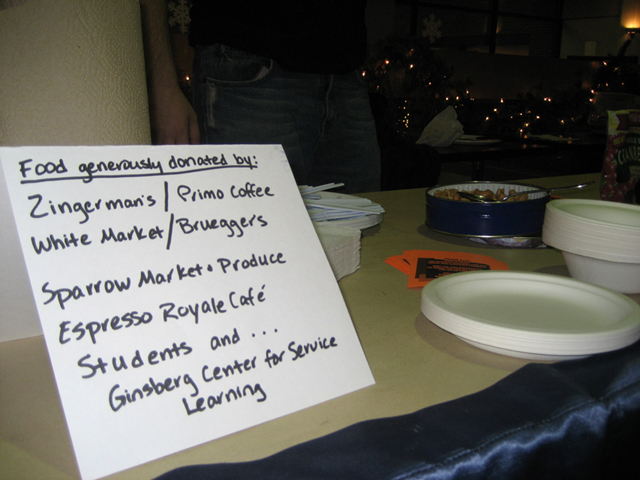 Food generously donated by:
Zingerman's / Primo Coffee
White Market / Brueggers
Sparrow Market • Produce
Espresso Royale Café
Students and ...
Ginsberg Center for Service
Learning